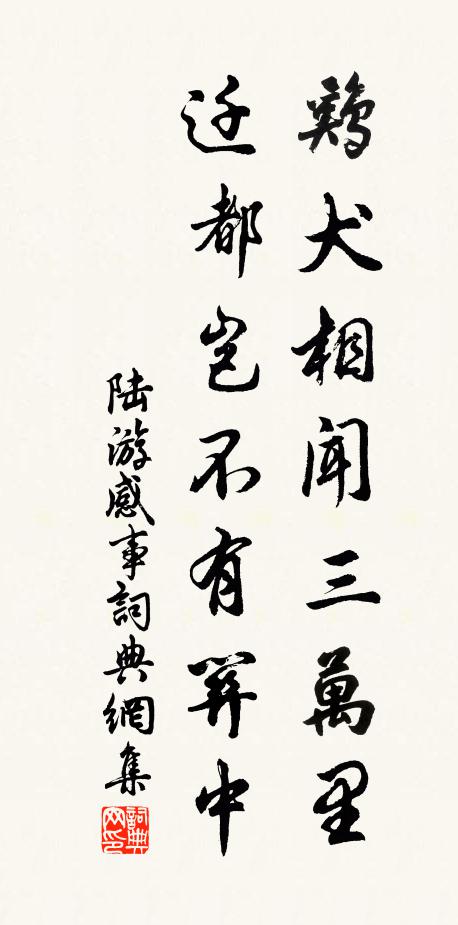 鷄犬相闻三萬里
迁都岂不有關中
陆游感事詞典網集
詞典网印